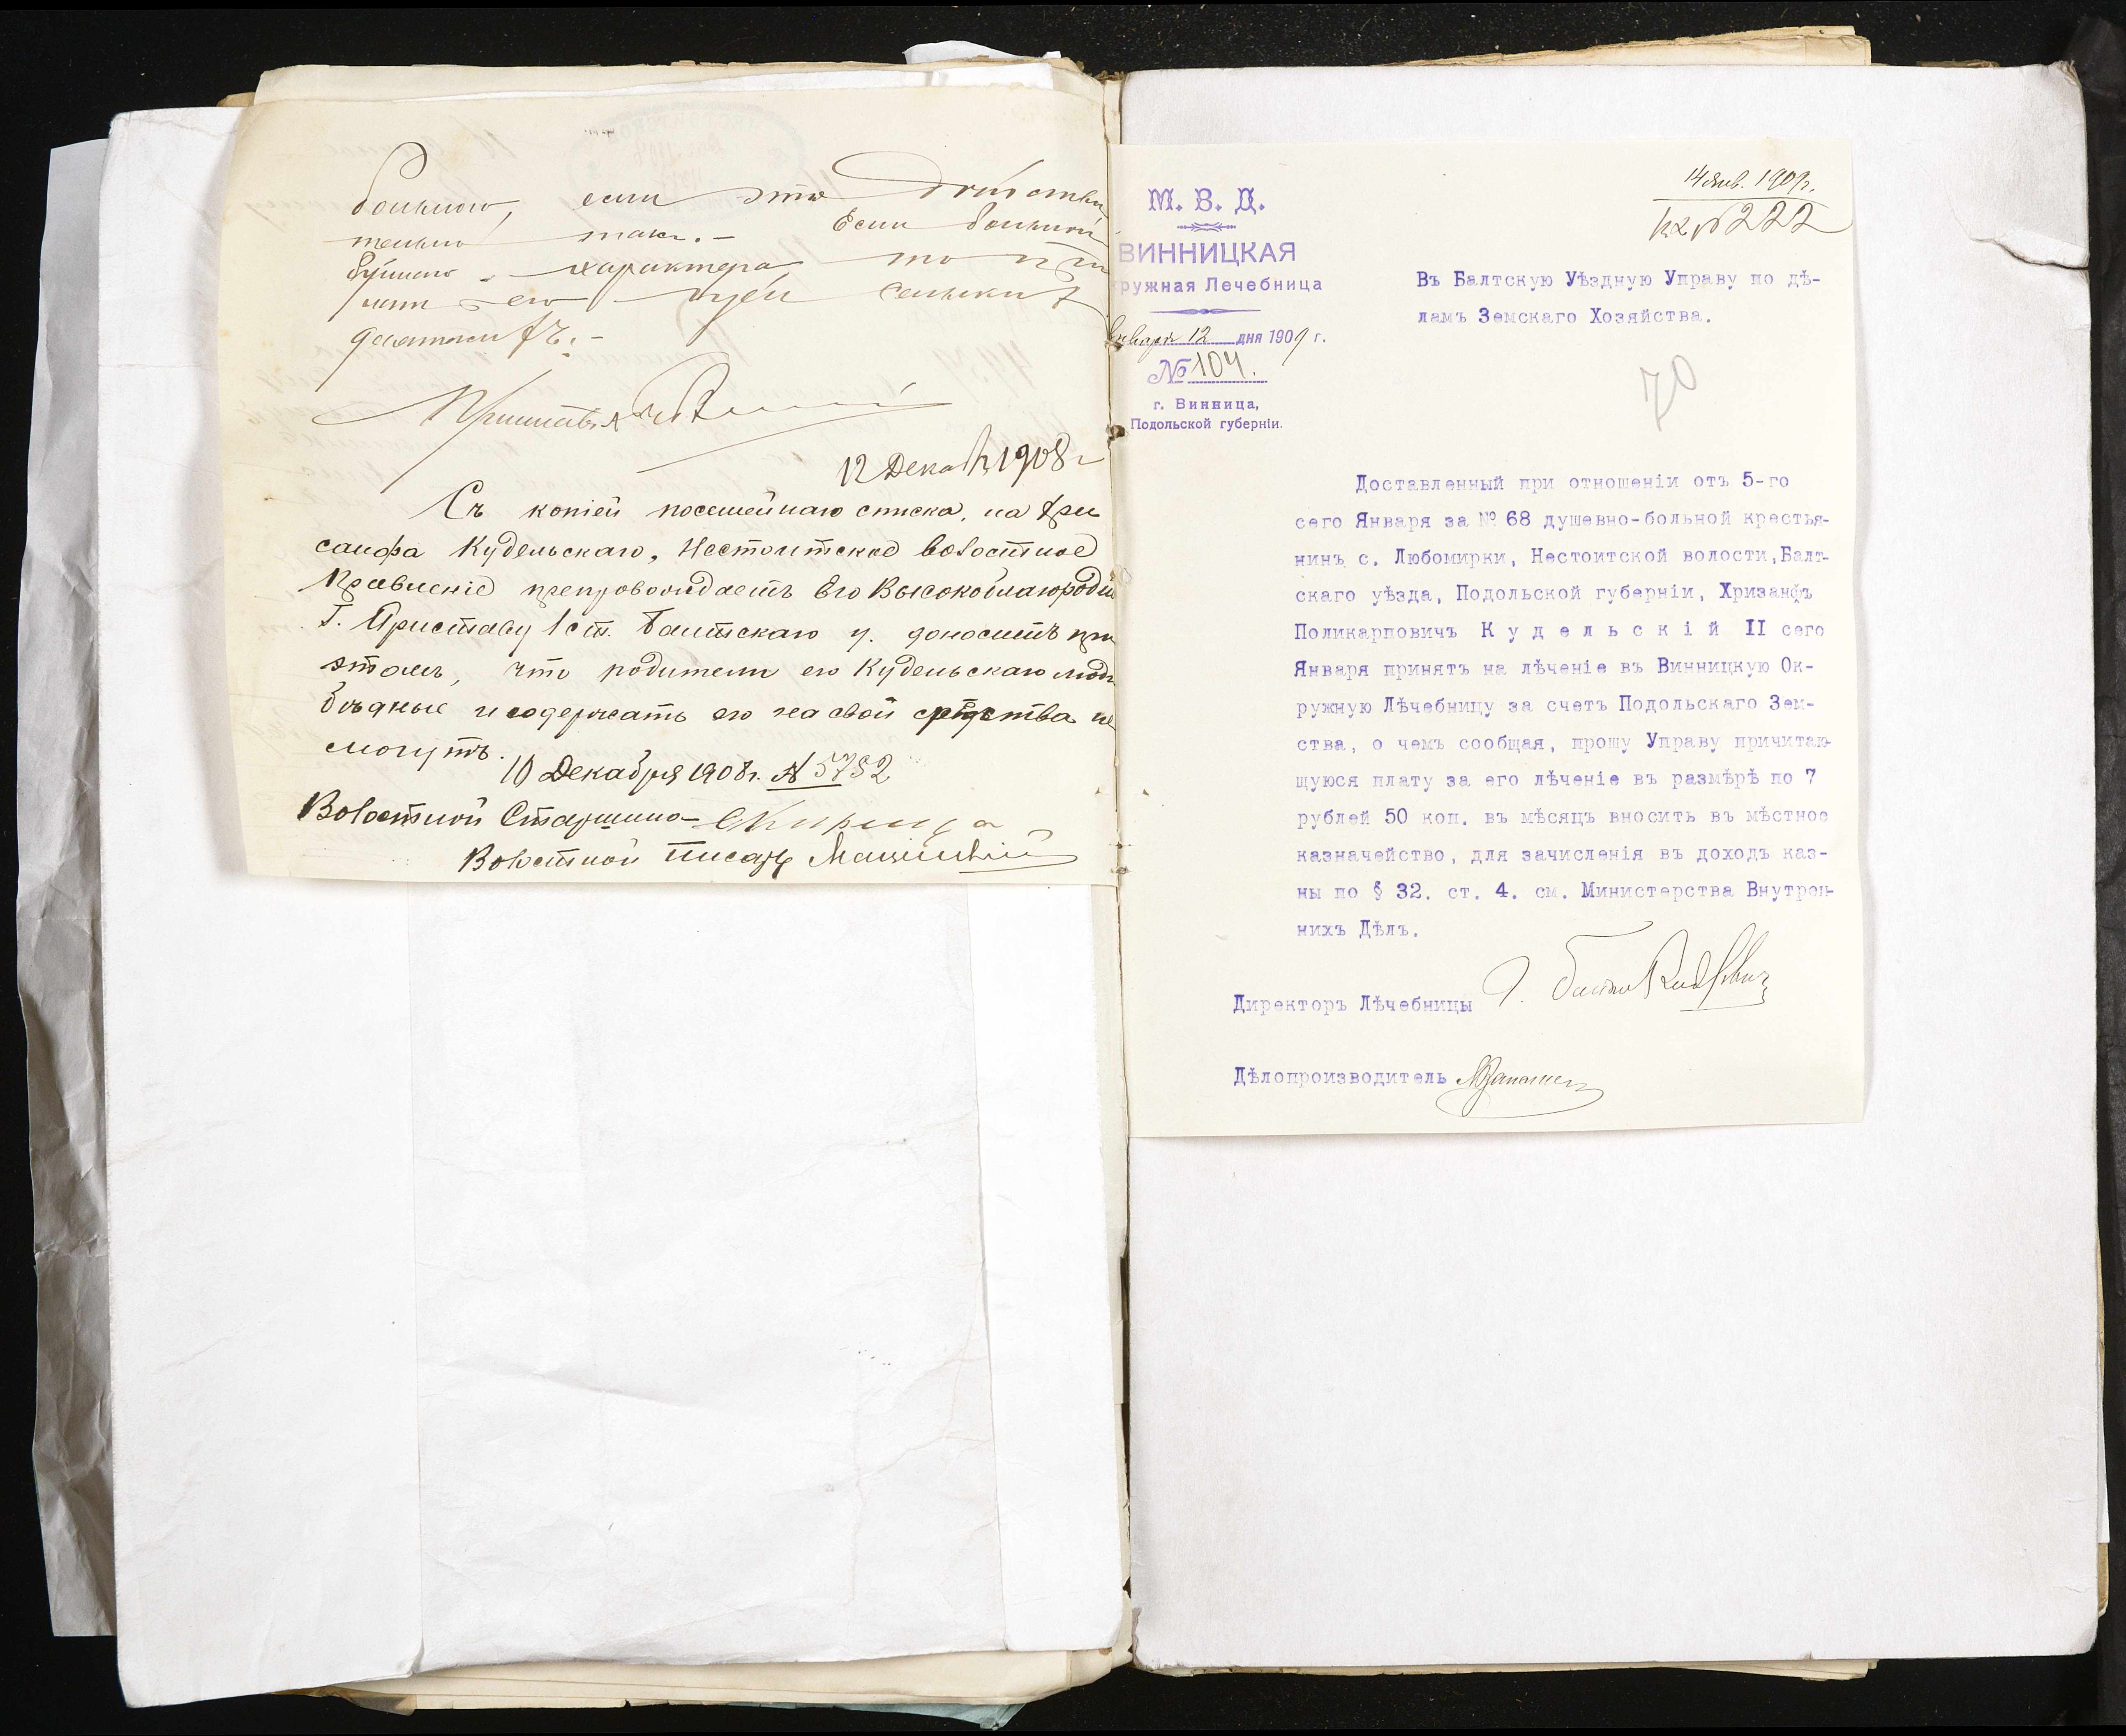 больного, если это действи
тельно такъ. – Если больной
буйнаго характера то при
нять его
десятскихъ. –
Приставъ
12 Дека 1908 г
Съ копіей посемейнаго списка, на Хри
санфа Кудельскаго, Нестоитское волостное
Правленіе препровождаетъ Его Высокоблагородію
Г. Приставу 1 ст. Балтскаго у. доноситъ при
этомъ, что родители его Кудельскаго люди
бѣдные и содержать его на свои средства не
могутъ.
10 Декабря 1908 г. № 5782
Волостной Старшина
Волостной Писарь
14 Янв. 1909 г.
вх № 222
М. В. Д.
ВИННИЦКАЯ
ружная Лечебница
Января 12 дня 1909 г.
№ 104.
г. Винница,
Подольской губерніи.
Въ Балтскую Уѣздную Управу по дѣ-
ламъ Земскаго Хозяйства.
70
Доставленный при отношеніи отъ 5-го
сего Января за № 68 душевно-больной крестья-
нинъ с. Любомирки, Нестоитской волости, Балт-
скаго уѣзда, Подольской губерніи, Хризанфъ
Поликарповичъ К у д е л ь с к і й II сего
Января принятъ на лѣченіе въ Винницкую Ок-
ружную Лѣчебницу за счетъ Подольскаго Зем-
ства, о чемъ сообщая, прошу Управу причитаю-
щуюся плату за его лѣченіе въ размѣрѣ по 7
рублей 50 коп. въ мѣсяцъ вносить въ мѣстное
казначейство, для зачисленія въ доходъ каз-
ны по § 32. ст. 4. см. Министерства Внутрен-
нихъ Дѣлъ.
Директоръ Лѣчебницы
Дѣлопроизводитель